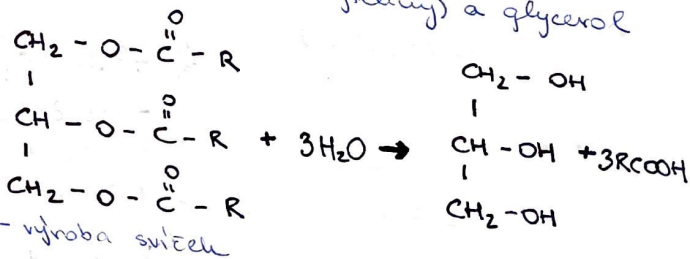 a glycerol
O
CH₂ - O - C - R
O
CH - O - C - R + 3H₂O → 
O
CH₂ - O - C - R
CH₂ - OH
CH - OH + 3RCOOH
CH₂ - OH
- výroba svíček